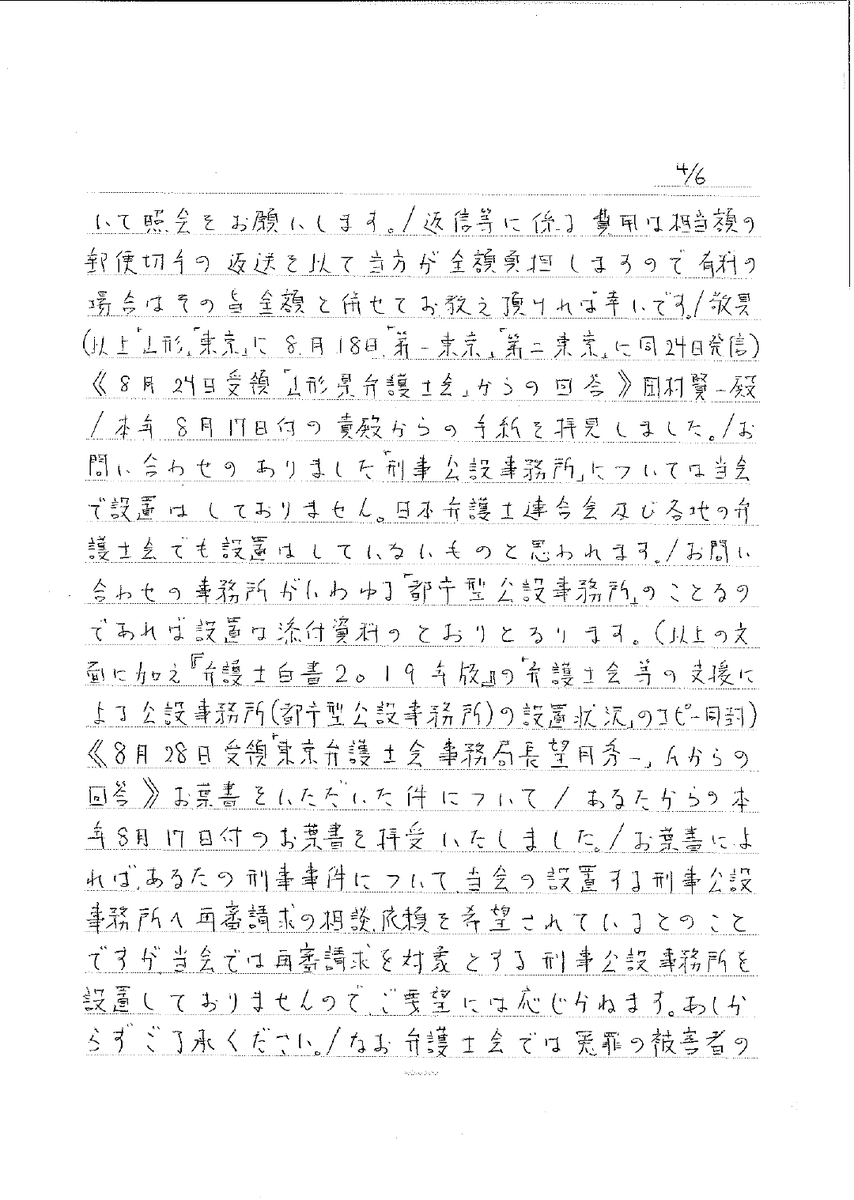 4/6
いて照会をお願いします。/返信等に係る費用は相当額の
郵便切手の返送を以て当方が全額負担しますので有料の
場合はその旨金額と併せてお教え頂ければ幸いです。/敬具
(以上「山形」「東京」に8月18日「第一東京」「第二東京」に同24日発信)
《8月24日受領「山形県弁護士会」からの回答》岡村賢一殿
/本年8月17日付の貴殿からの手紙を拝見しました。/お
問い合わせのありました「刑事公設事務所」については当会
で設置はしておりません。日本弁護士連合会及び各地の弁
護士会でも設置はしていないものと思われます。/お問い
合わせの事務所がいわゆる「都市型公設事務所」のことなの
であれば設置は添付資料のとおりとなります。(以上の文
面に加え『弁護士白書2019年版』の「弁護士会等の支援に
よる公設事務所(都市型公設事務所)の設置状況」のコピー同封)
《8月28日受領「東京弁護士会事務局長望月秀一」さんからの
回答》お葉書をいただいた件について/あなたからの本
年8月17日付のお葉書を拝受いたしました。/お葉書によ
れば、あなたの刑事事件について、当会の設置する刑事公設
事務所へ再審請求の相談、依頼を希望されているとのこと
ですが、当会では再審請求を対象とする刑事公設事務所を
設置しておりませんので、ご要望には応じかねます。あしか
らずご了承ください。/なお弁護士会では冤罪の被害者の